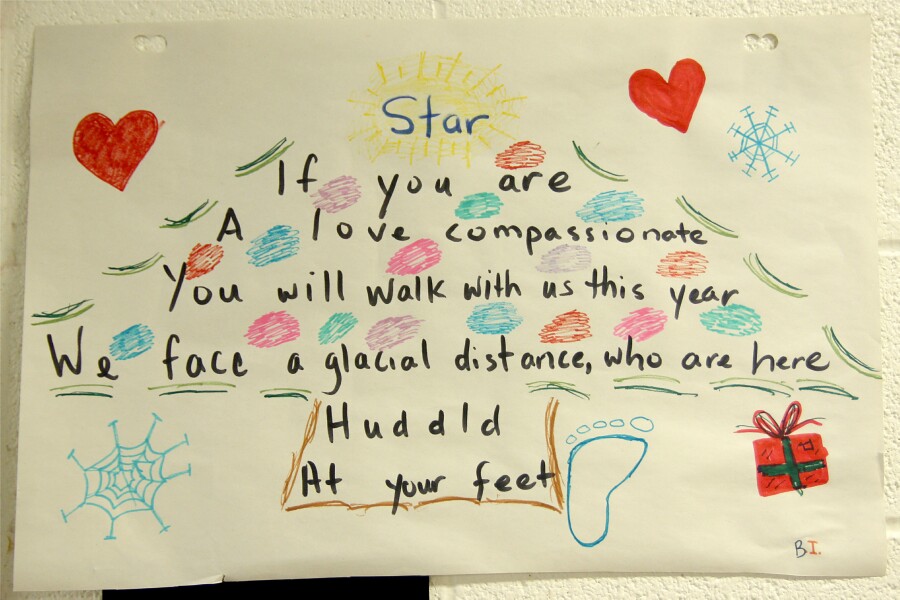 Star
If you are
A love compassionate
You will walk with us this year
We face a glacial distance, who are here
Huddld
At your feet
B.I.